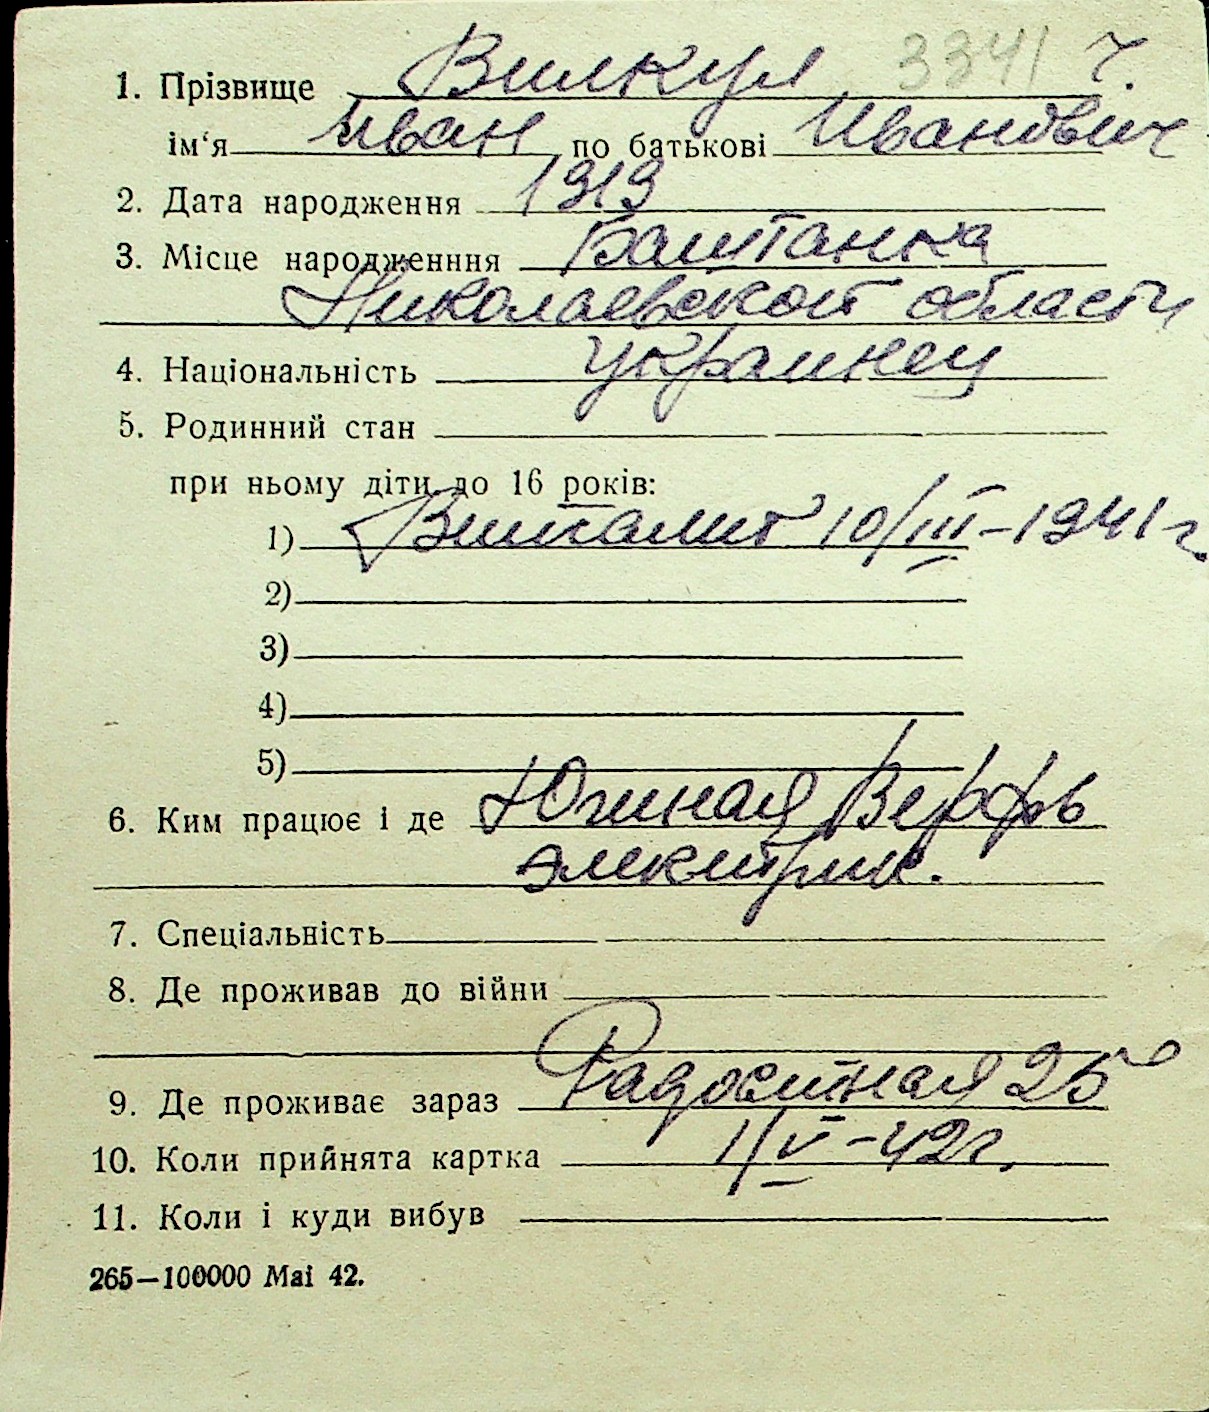 3341 ч.
1. Прізвище Вилкул
ім‘я Иван по батькові Иванович
2. Дата народження 1919
3. Місце народженння Баштанка
Николаевской области
4. Національність украинец
5. Родинний стан
при ньому діти до 16 років:
1) Виталит 10/III-1941 г.
2)
3)
4)
5)
6. Ким працює і де Южная Верфь
электрик.
7. Спеціальність
8. Де проживав до війни
9. Де проживає зараз Радостная 25
10. Коли прийнята картка 1/V-42г.
11. Коли і куди вибув
265—100000 Mai 42.